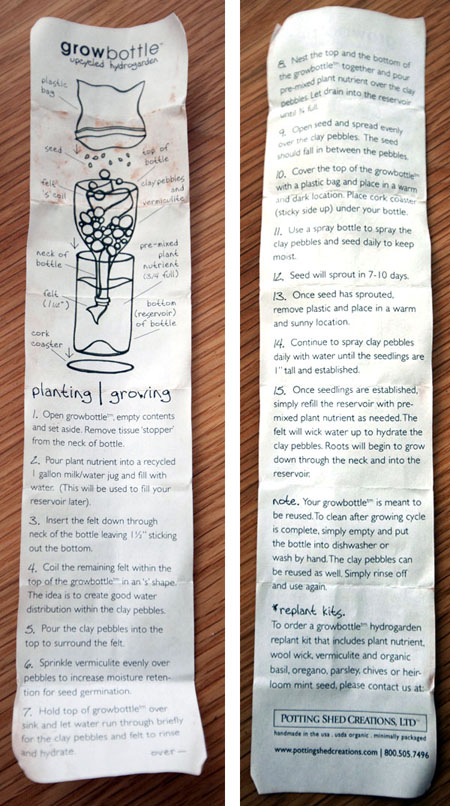 growbottle™
upcycled hydrogarden
plastic
bag
seed
top of
bottle
felt
's' coil
clay pebbles
and
vermiculite
neck of
bottle
pre-mixed
plant
nutrient
(3/4 full)
felt
(1 1/2")
bottom
(reservoir)
of bottle
cork
coaster
planting | growing
1. Open growbottle™, empty contents
and set aside. Remove tissue 'stopper'
from the neck of bottle.
2. Pour plant nutrient into a recycled
1 gallon milk/water jug and fill with
water. (This will be used to fill your
reservoir later).
3. Insert the felt down through
neck of the bottle leaving 1½" sticking
out the bottom.
4. Coil the remaining felt within the
top of the growbottle™ in an 's' shape.
The idea is to create good water
distribution within the clay pebbles.
5. Pour the clay pebbles into the
top to surround the felt.
6. Sprinkle vermiculite evenly over
pebbles to increase moisture reten-
tion for seed germination.
7. Hold top of growbottle™ over
sink and let water run through briefly
for the clay pebbles and felt to rinse
and hydrate.
over—
8. Nest the top and the bottom of
the growbottle™ together and pour
pre-mixed plant nutrient over the clay
pebbles. Let drain into the reservoir
until ¾ full.
9. Open seed and spread evenly
over the clay pebbles. The seed
should fall in between the pebbles.
10. Cover the top of the growbottle™
with a plastic bag and place in a warm
and dark location. Place cork coaster
(sticky side up) under your bottle.
11. Use a spray bottle to spray the
clay pebbles and seed daily to keep
moist.
12. Seed will sprout in 7-10 days.
13. Once seed has sprouted,
remove plastic and place in a warm
and sunny location.
14. Continue to spray clay pebbles
daily with water until the seedlings are
1" tall and established.
15. Once seedlings are established,
simply refill the reservoir with pre-
mixed plant nutrient as needed. The
felt will wick water up to hydrate the
clay pebbles. Roots will begin to grow
down through the neck and into the
reservoir.
note. Your growbottle™ is meant to
be reused. To clean after growing cycle
is complete, simply empty and put
the bottle into dishwasher or
wash by hand. The clay pebbles can
be reused as well. Simply rinse off
and use again.
*replant kits.
To order a growbottle™ hydrogarden
replant kit that includes plant nutrient,
wool wick, vermiculite and organic
basil, oregano, parsley, chives or heir-
loom mint seed, please contact us at:
POTTING SHED CREATIONS, LTD™
handmade in the usa . usda organic . minimally packaged
www.pottingshedcreations.com | 800.505.7496